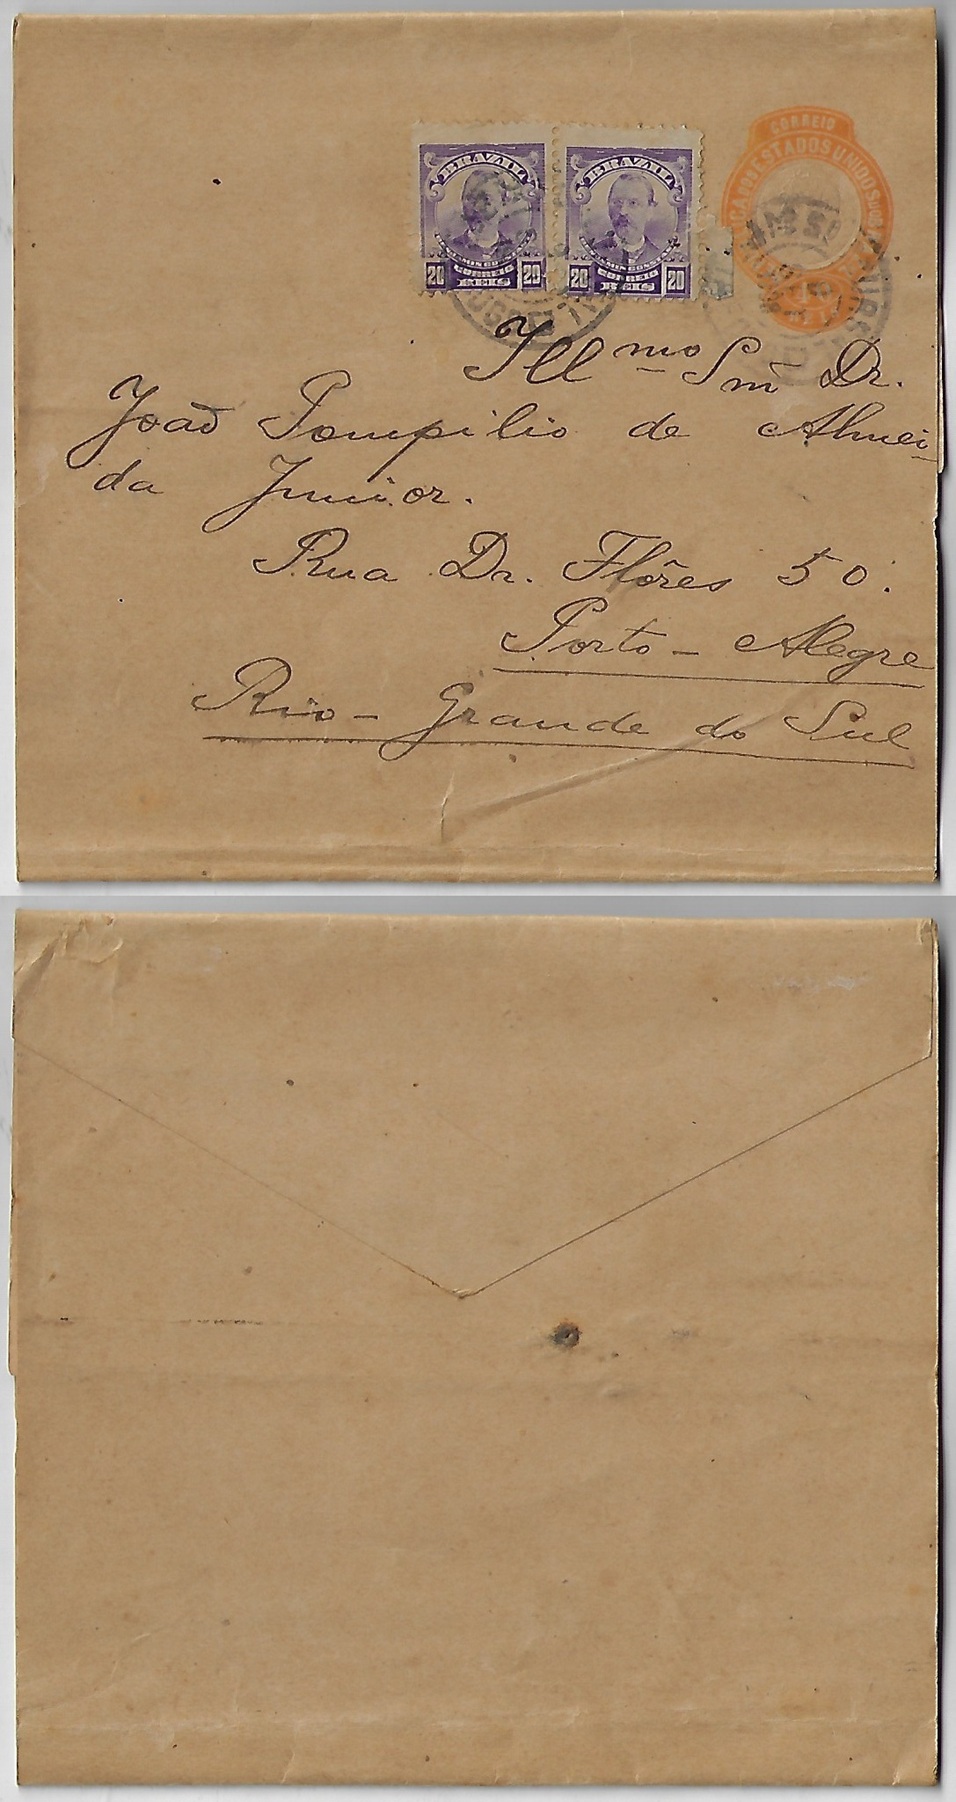 CORREIO
ESTADOS UNIDOS
BRAZIL BRAZIL
20 CORREIO 20 20 CORREIO 20
REIS REIS
Illmo Snr Dr.
João Pompilio de Almei-
da Junior.
Rua Dr. Flôres 50.
Porto - Alegre
Rio - Grande do Sul